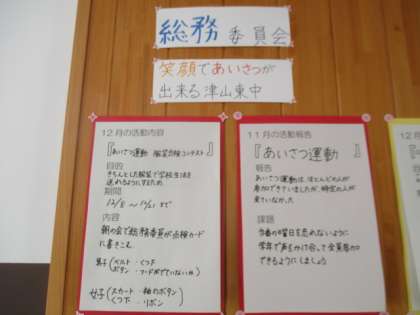 総務 委員会
笑顔であいさつが
出来る津山東中
12月の活動内容
『あいさつ運動 服装点検コンテスト』
目的
きちんとした服装で学校生活を
送れるようにするため。
期間
12/8 〜 12/21 まで
内容
朝の会で総務委員が点検カード
に書きこむ。
男子(ベルト・くつ下
ボタン・フードがでていないか)
女子(スカート・袖のボタン
くつ下・リボン)
11月の活動報告
『あいさつ運動』
報告
あいさつ運動は、ほとんどの人が
参加できていましたが、特定の人が
来ていなかった。
課題
当番の曜日を忘れないように
学年で声をかけ合って全員参加
できるようにしましょう